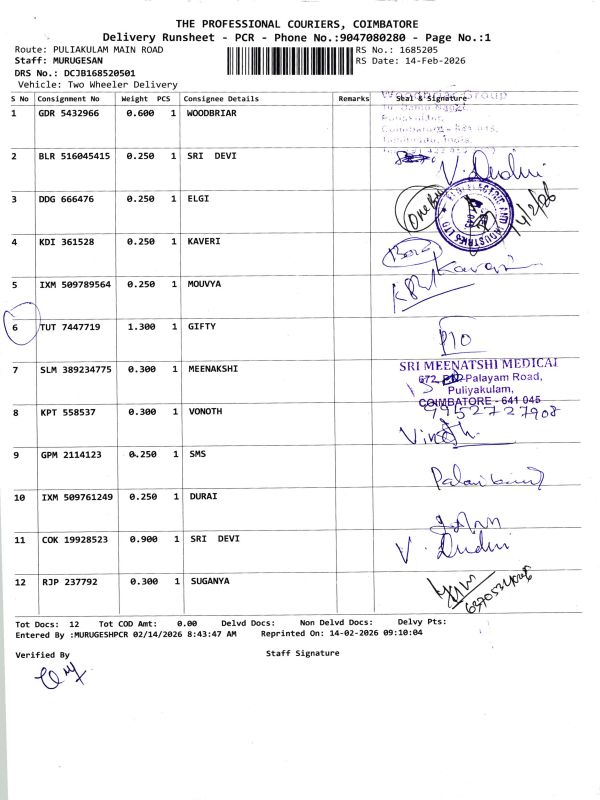 THE PROFESSIONAL COURIERS, COIMBATORE
Delivery Runsheet - PCR - Phone No.:9047080280 - Page No.:1
Route: PULIAKULAM MAIN ROAD
RS No.: 1685205
Staff: MURUGESAN
RS Date: 14-Feb-2026
DRS No.: DCJB168520501
Vehicle: Two Wheeler Delivery
S No Consignment No Weight PCS Consignee Details Remarks Seal & Signature
1 GDR 5432966 0.600 1 WOODBRIAR
Coimbatore - 641 045,
2 BLR 516045415 0.250 1 SRI DEVI
3 DDG 666476 0.250 1 ELGI
14/2/26
4 KDI 361528 0.250 1 KAVERI
Kaveri
5 IXM 509789564 0.250 1 MOUVYA
6 TUT 7447719 1.300 1 GIFTY
7 SLM 389234775 0.300 1 MEENAKSHI
SRI MEENATSHI MEDICAL
Palayam Road,
Puliyakulam,
COIMBATORE - 641 045
9952727908
8 KPT 558537 0.300 1 VONOTH
Vinoth.
9 GPM 2114123 0.250 1 SMS
10 IXM 509761249 0.250 1 DURAI
11 COK 19928523 0.900 1 SRI DEVI
12 RJP 237792 0.300 1 SUGANYA
Tot Docs: 12 Tot COD Amt: 0.00 Delvd Docs: Non Delvd Docs: Delvy Pts:
Entered By :MURUGESHPCR 02/14/2026 8:43:47 AM Reprinted On: 14-02-2026 09:10:04
Verified By Staff Signature